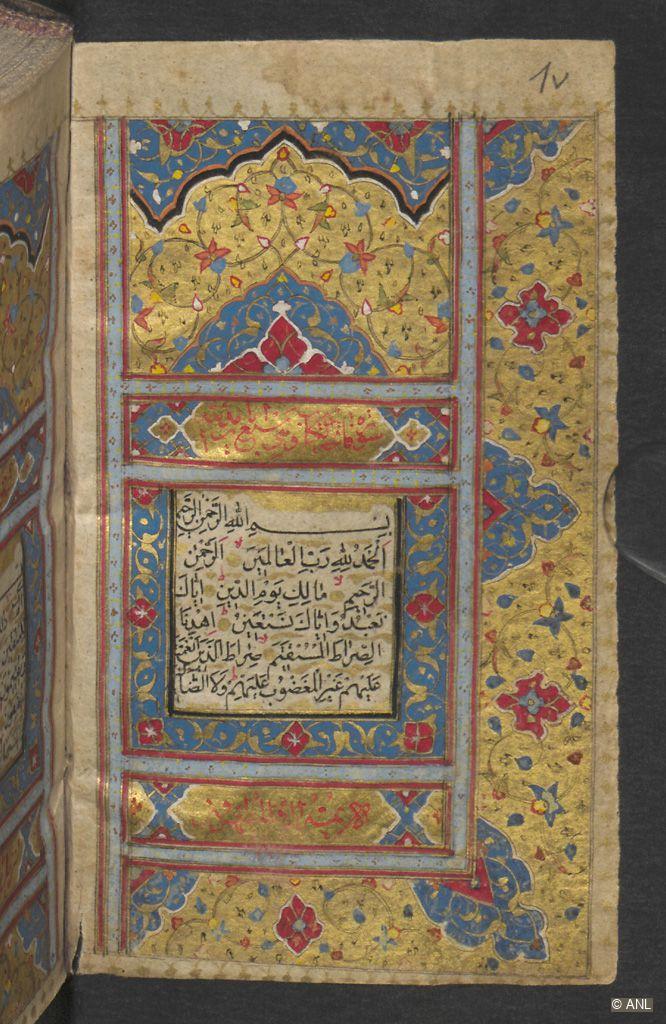 1v
بسم الله الرحمن الرحيم
الحمد لله رب العالمين الرحمن
الرحيم مالك يوم الدين اياك
نعبد واياك نستعين اهدنا
الصراط المستقيم صراط الذين انعمت
عليهم غير المغضوب عليهم ولا الضالين
لا يمسه الا المطهرون
© ANL